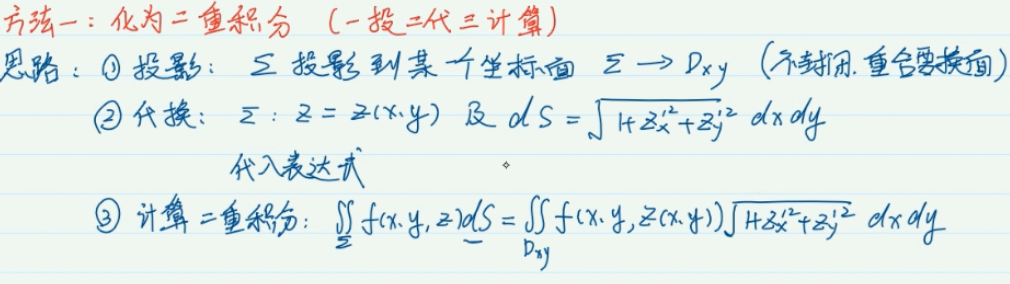 方法一：化为二重积分 （一投二代三计算）
思路：① 投影： Σ 投影到某一个坐标面 Σ → Dxy （不封闭.重合需换面）
② 代换： Σ：z = z(x.y) 及 dS = √(1+z'x²+z'y²) dxdy
代入表达式
③ 计算二重积分：∬Σ f(x.y,z)dS = ∬Dxy f(x.y,z(x.y))√(1+z'x²+z'y²) dxdy